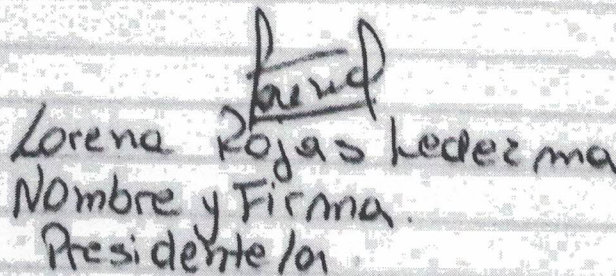 Lorena Rojas Ledezma
Nombre y Firma.
Presidente/a